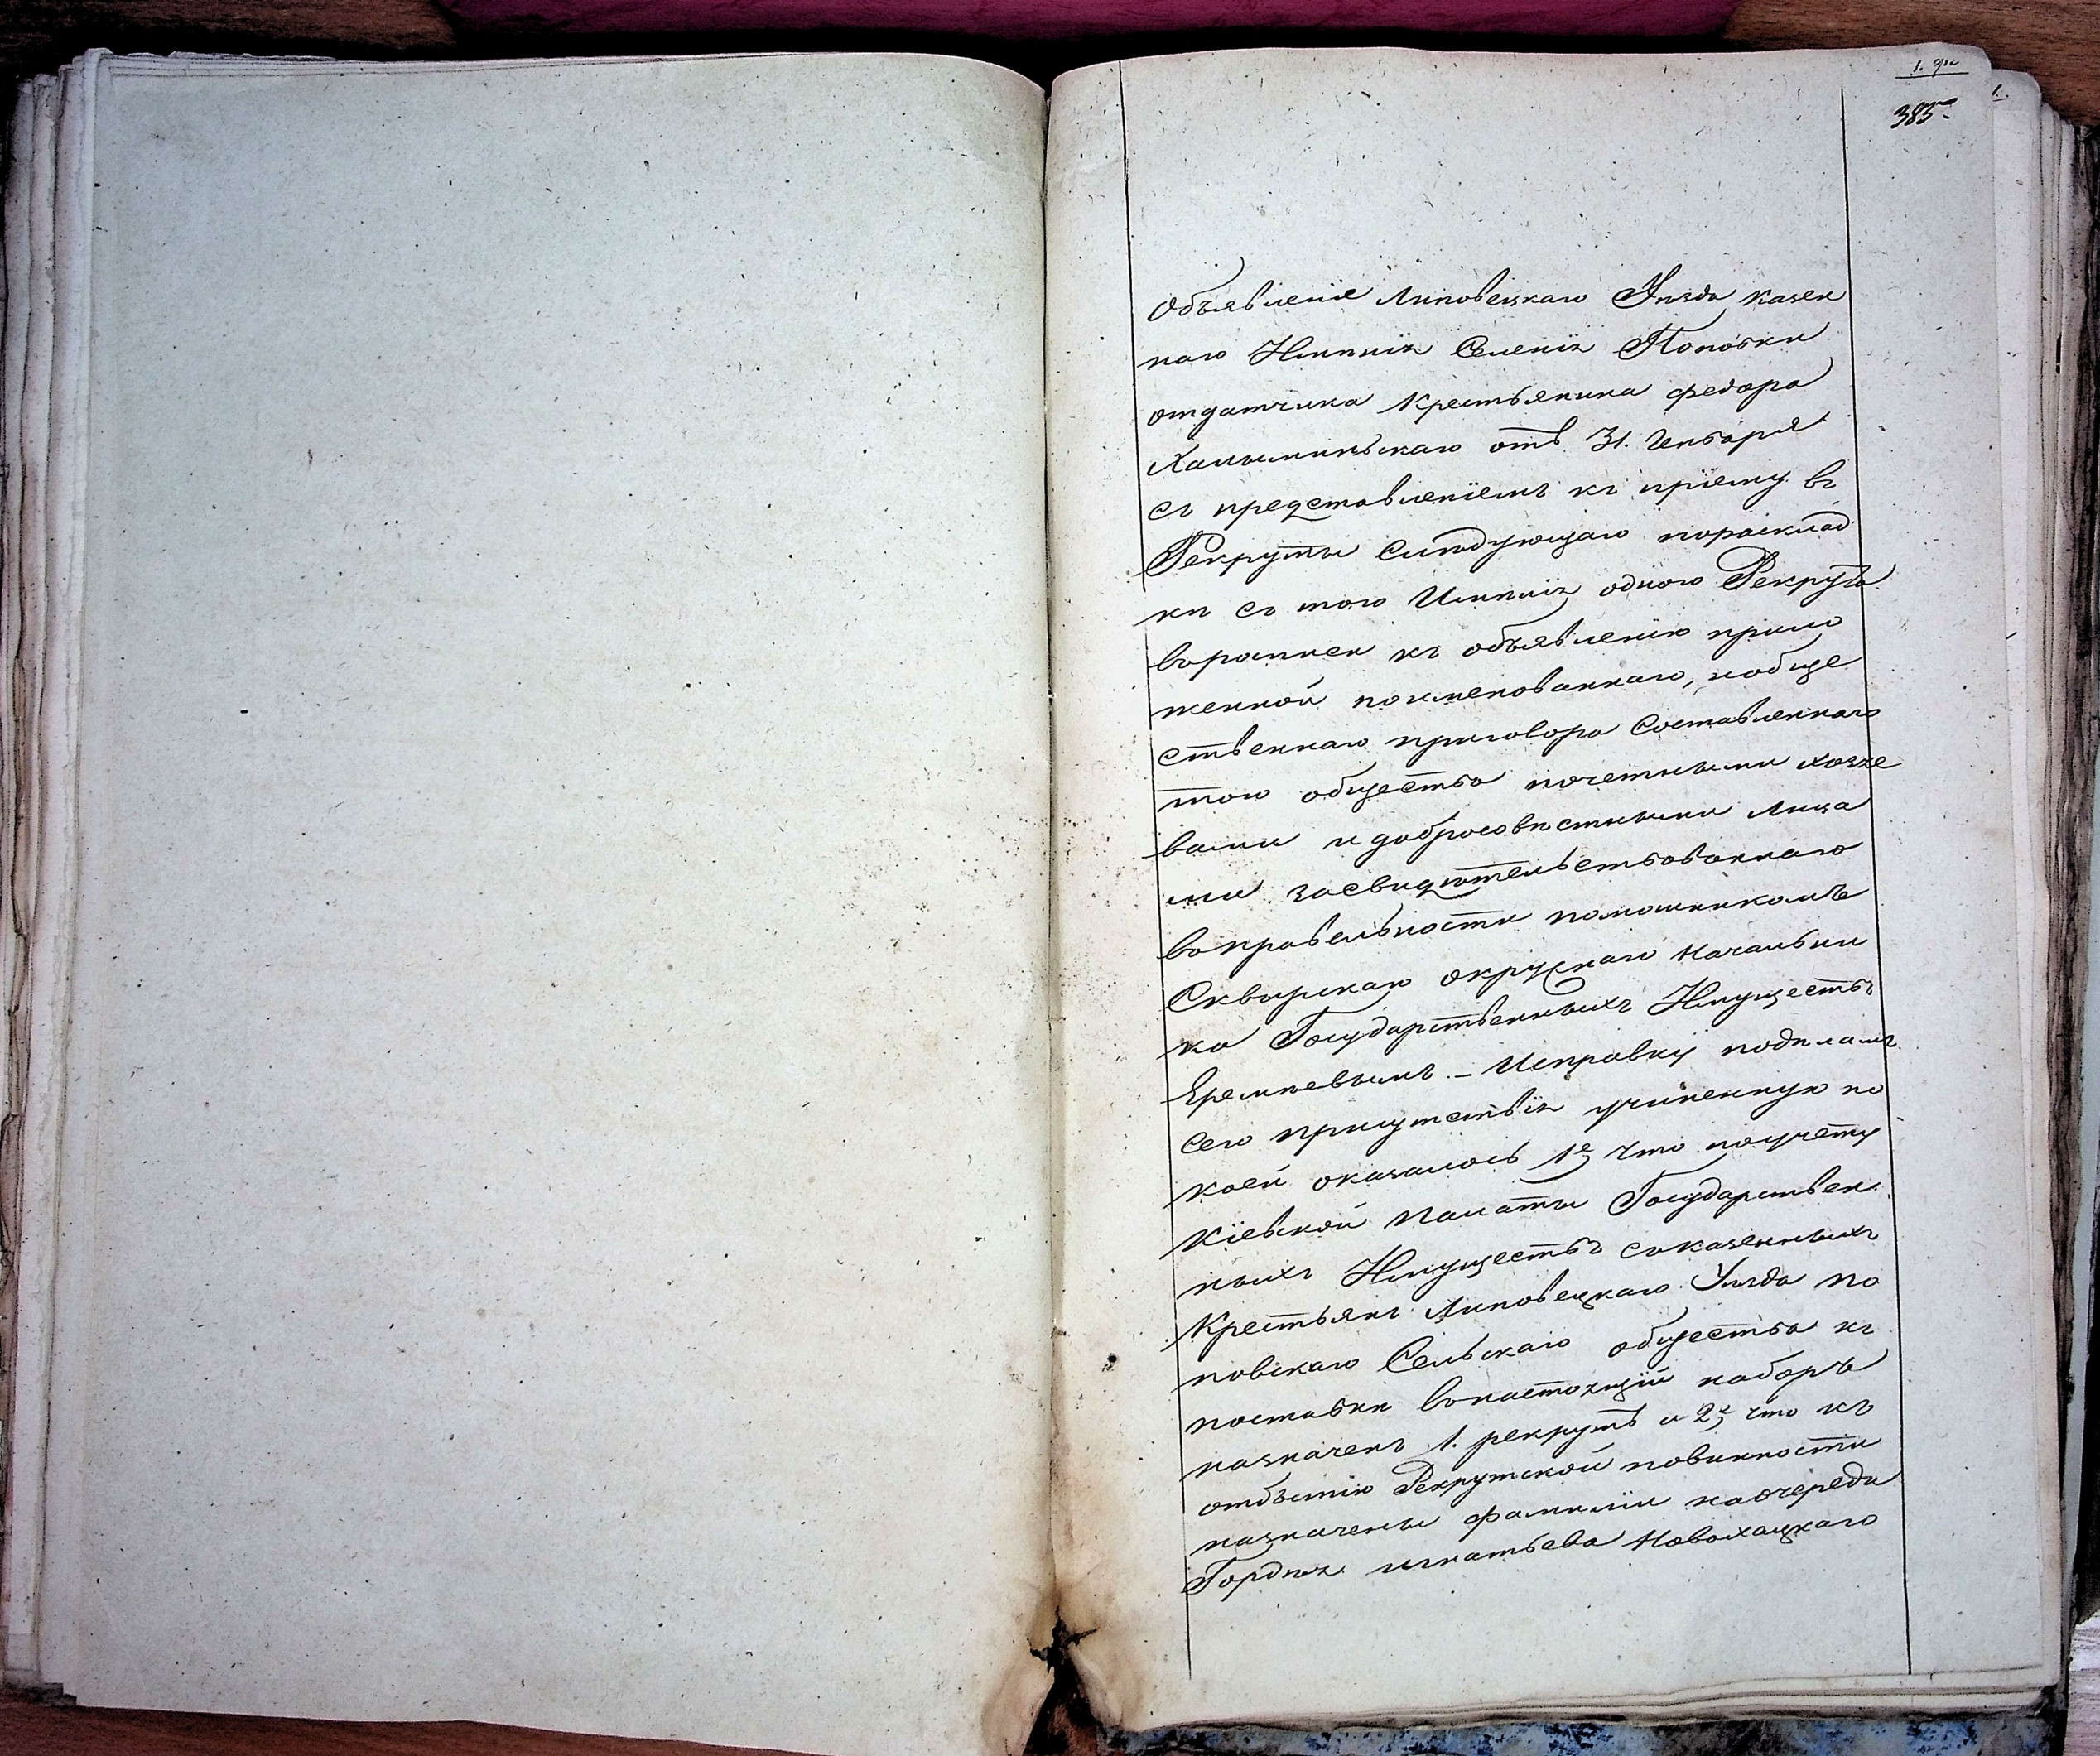 385
Объявленіе Липовецкаго Уѣзда казен
наго Имѣнія Селенія Поповки
отдатчика Крестьянина Федора
отъ 31. Генваря
съ представленіемъ къ пріему въ
Рекруты Слѣдующаго пораскляд
кѣ съ того Имѣнія одного Рекрута
въ къ объявленію прило
женной поименованнаго, иобще
ственнаго приговора Составленнаго
того общества почетными хозяе
вами и добросовѣстными лица
ми засвидѣтельствованнаго
вправельности помошникомъ
Сквирскаго окружнаго Начальни
ка Государственныхъ Имуществъ
Еремѣевымъ. – Исправку подѣламъ
сего присутствія учиненную по
коей оказалось 1е, Что поучету
Кіевской Палаты Государствен
ныхъ Имуществъ съказенныхъ
Крестьянъ Липовецкаго Уѣзда По
повскаго Сельскаго общества къ
поставки внастоящій наборъ
назначенъ 1. рекрутъ и 2е, что къ
отбытію Рекрутской повинности
назначены фамиліи наочереди
Гордѣя игнатьева Новохацкаго